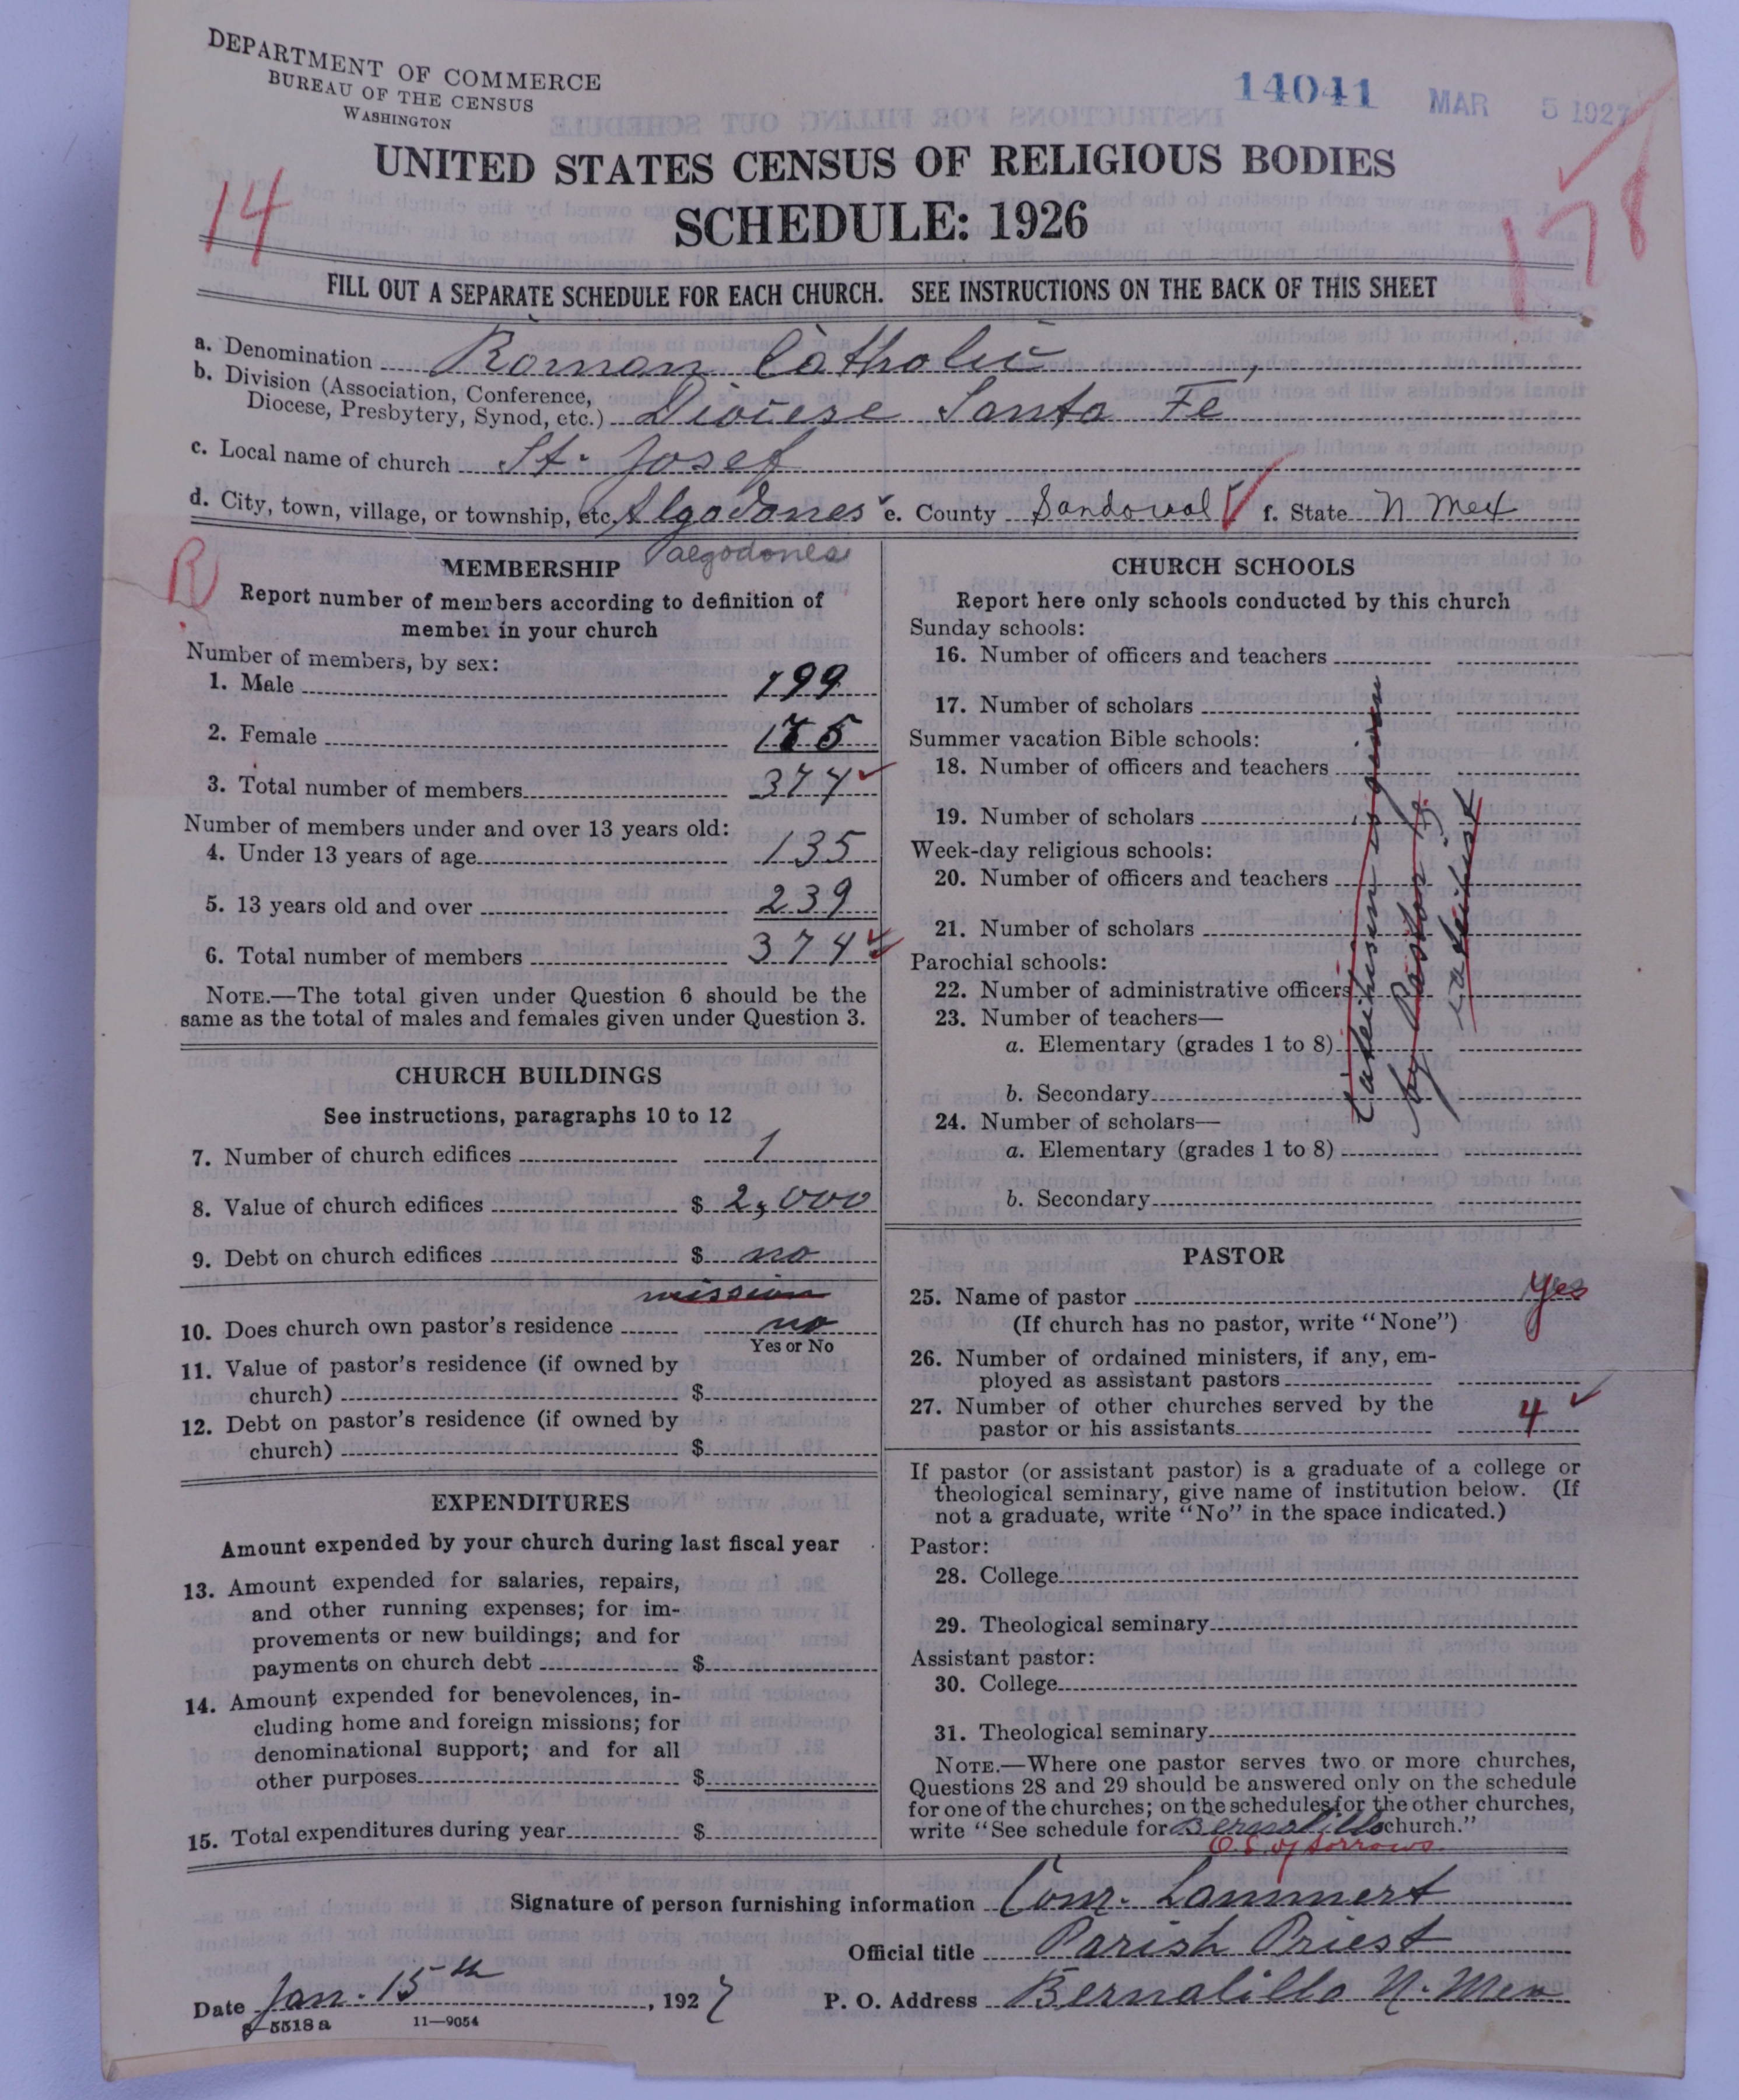 DEPARTMENT OF COMMERCE
BUREAU OF THE CENSUS
WASHINGTON
14041 MAR 5 1927
UNITED STATES CENSUS OF RELIGIOUS BODIES
SCHEDULE: 1926
14
178
FILL OUT A SEPARATE SCHEDULE FOR EACH CHURCH. SEE INSTRUCTIONS ON THE BACK OF THIS SHEET
a. Denomination Roman Catholic
b. Division (Association, Conference,
Diocese, Presbytery, Synod, etc.) Diocese Santa Fe
c. Local name of church St. Josef
d. City, town, village, or township, etc. Algodones e. County Sandoval f. State N Mex
algodones
R
MEMBERSHIP
Report number of members according to definition of
member in your church
Number of members, by sex:
1. Male 199
2. Female 175
3. Total number of members 374
Number of members under and over 13 years old:
4. Under 13 years of age 135
5. 13 years old and over 239
6. Total number of members 374
NOTE.—The total given under Question 6 should be the
same as the total of males and females given under Question 3.
CHURCH BUILDINGS
See instructions, paragraphs 10 to 12
7. Number of church edifices 1
8. Value of church edifices $ 2,000
9. Debt on church edifices $ no
mission
10. Does church own pastor's residence no
Yes or No
11. Value of pastor's residence (if owned by
church) $
12. Debt on pastor's residence (if owned by
church) $
EXPENDITURES
Amount expended by your church during last fiscal year
13. Amount expended for salaries, repairs,
and other running expenses; for im-
provements or new buildings; and for
payments on church debt $
14. Amount expended for benevolences, in-
cluding home and foreign missions; for
denominational support; and for all
other purposes $
15. Total expenditures during year $
CHURCH SCHOOLS
Report here only schools conducted by this church
Sunday schools:
16. Number of officers and teachers
17. Number of scholars
Summer vacation Bible schools:
18. Number of officers and teachers
19. Number of scholars
Week-day religious schools:
20. Number of officers and teachers
21. Number of scholars
Parochial schools:
22. Number of administrative officers
23. Number of teachers—
a. Elementary (grades 1 to 8)
b. Secondary
24. Number of scholars—
a. Elementary (grades 1 to 8)
b. Secondary
by Pastor &
PASTOR
25. Name of pastor yes
(If church has no pastor, write "None")
26. Number of ordained ministers, if any, em-
ployed as assistant pastors
27. Number of other churches served by the
pastor or his assistants 4
If pastor (or assistant pastor) is a graduate of a college or
theological seminary, give name of institution below. (If
not a graduate, write "No" in the space indicated.)
Pastor:
28. College
29. Theological seminary
Assistant pastor:
30. College
31. Theological seminary
NOTE.—Where one pastor serves two or more churches,
Questions 28 and 29 should be answered only on the schedule
for one of the churches; on the schedules for the other churches,
write "See schedule for Bernalillo church."
O. L. of Sorrows
Signature of person furnishing information Conr. Lammert
Official title Parish Priest
Date Jan. 15th, 1927 P. O. Address Bernalillo N. Mex
8—5518 a 11—9054